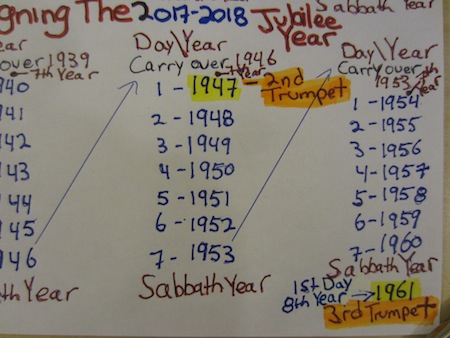 gning The 2017-2018 Jubilee
Year
Sabbath Year
ear
over 1939
7th Year
940
941
942
943
944
945
946
th Year
Day\Year
Carry over 1946
7th Year
1 - 1947 - 2nd
Trumpet
2 - 1948
3 - 1949
4 - 1950
5 - 1951
6 - 1952
7 - 1953
Sabbath Year
Day\Year
Carry over 7th
1953 Year
1 - 1954
2 - 1955
3 - 1956
4 - 1957
5 - 1958
6 - 1959
7 - 1960
Sabbath Year
1st Day
8th Year → 1961
3rd Trumpet